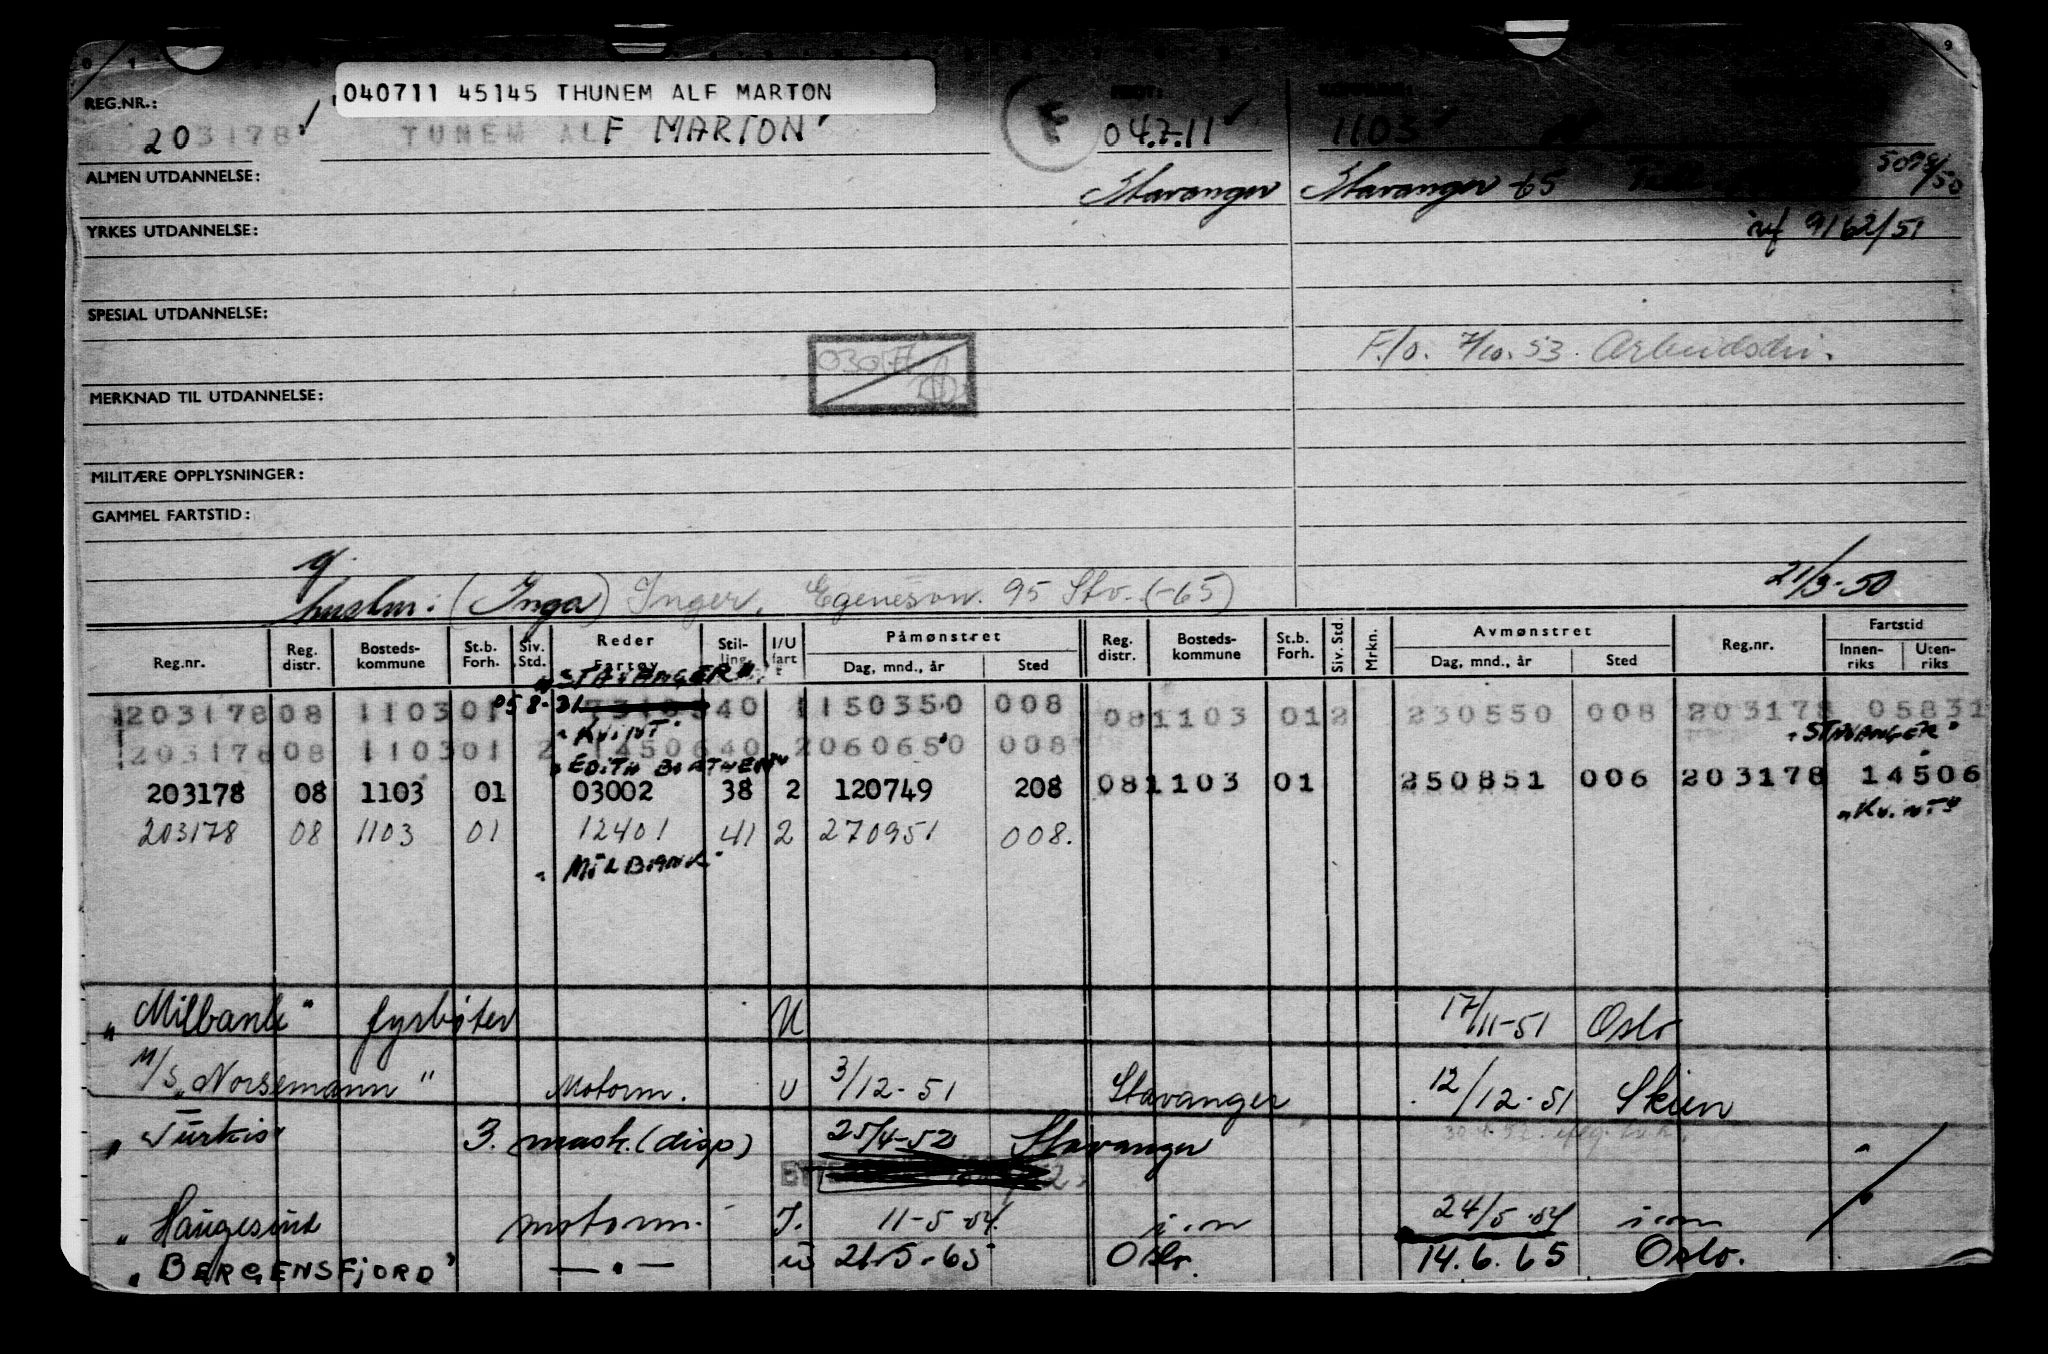 040711 45145 THUNEM ALF MARTON
REG.NR.:
203178 TUNEM ALF MARTON F 04.7.11 1103
ALMEN UTDANNELSE: Stavanger Stavanger -65
YRKES UTDANNELSE: 9162/51
SPESIAL UTDANNELSE:
F/o. 7/10.53.
MERKNAD TIL UTDANNELSE:
MILITÆRE OPPLYSNINGER:
GAMMEL FARTSTID:
g/
hustru: (Inga) Inger, Egenesvn. 95 Stv. (-65) 21/3-50
Reg.nr. Reg. distr. Bosteds-kommune St.b. Forh. Siv. Std. Reder Fartøy Stil-ling I/U fart Påmønstret Dag, mnd., år Sted Reg. distr. Bosteds-kommune St.b. Forh. Siv. Std. Mrkn. Avmønstret Dag, mnd., år Sted Reg.nr. Fartstid Innen-riks Uten-riks
"STAVANGER"
203178 08 1103 01 058-31 40 1 150350 008 08 1103 01 2 230550 008 203178 05831
"Kvint" "STAVANGER"
203178 08 1103 01 2 14506 40 2 060650 008
"EDITH BORTHEN"
203178 08 1103 01 03002 38 2 120749 208 08 1103 01 250851 006 203178 14506
"Kvint"
203178 08 1103 01 12401 41 2 270951 008.
"MILBANK"
"Milbank" fyrbøter U 17/11-51 Oslo
M/S "Norsemann" Motorm. U 3/12-51 Stavanger 12/12-51 Skien
"Turkis" 3. mask. (disp) 25/4-52 Stavanger
"Haugesund motorm. I. 11-5-54. 24/5-54
"BERGENSFJORD" — . — U 21-5-65 Oslo. 14.6.65 Oslo.